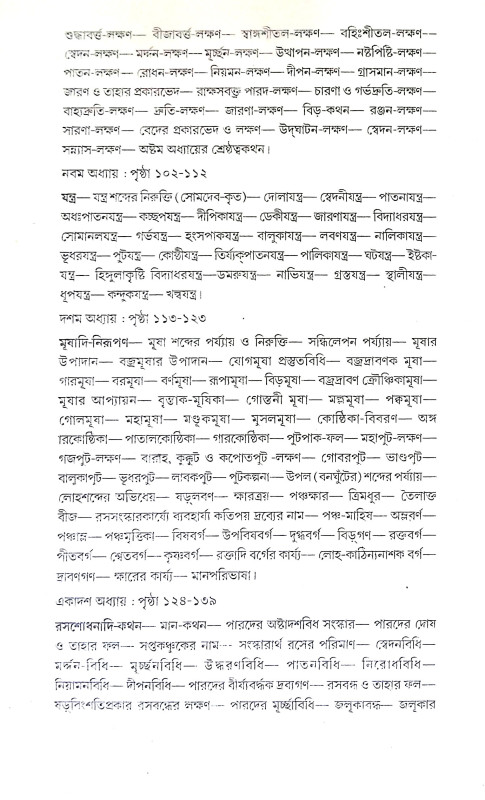 শুদ্ধাবর্ত্ত-লক্ষণ— বীজাবর্ত্ত-লক্ষণ— স্বাঙ্গশীতল-লক্ষণ— বহিঃশীতল-লক্ষণ—
স্বেদন-লক্ষণ— মর্দ্দন-লক্ষণ— মূর্চ্ছন-লক্ষণ— উত্থাপন-লক্ষণ— নষ্টপিষ্টি-লক্ষণ—
পাতন-লক্ষণ— রোধন-লক্ষণ— নিয়মন-লক্ষণ— দীপন-লক্ষণ— গ্রাসমান-লক্ষণ—
জারণ ও তাহার প্রকারভেদ— রাক্ষসবক্ত্র পারদ-লক্ষণ— চারণা ও গর্ভদ্রুতি-লক্ষণ—
বাহ্যদ্রুতি-লক্ষণ— দ্রুতি-লক্ষণ— জারণা-লক্ষণ— বিড়-কথন— রঞ্জন-লক্ষণ—
সারণা-লক্ষণ— বেদের প্রকারভেদ ও লক্ষণ— উদ্‌ঘাটন-লক্ষণ— স্বেদন-লক্ষণ—
সন্ন্যাস-লক্ষণ— অষ্টম অধ্যায়ের শ্রেষ্ঠত্বকথন।
নবম অধ্যায় : পৃষ্ঠা ১০২-১১২
যন্ত্র— যন্ত্র শব্দের নিরুক্তি (সোমদেব-কৃত)— দোলাযন্ত্র— স্বেদনীযন্ত্র— পাতনাযন্ত্র—
অধঃপাতনযন্ত্র— কচ্ছপযন্ত্র— দীপিকাযন্ত্র— ডেকীযন্ত্র— জারণাযন্ত্র— বিদ্যাধরযন্ত্র—
সোমানলযন্ত্র— গর্ভযন্ত্র— হংসপাকযন্ত্র— বালুকাযন্ত্র— লবণযন্ত্র— নালিকাযন্ত্র—
ভূধরযন্ত্র— পুটযন্ত্র— কোষ্ঠীযন্ত্র— তির্য্যক্‌পাতনযন্ত্র— পালিকাযন্ত্র— ঘটযন্ত্র— ইষ্টকা-
যন্ত্র— হিঙ্গুলাকৃষ্টি বিদ্যাধরযন্ত্র—ডমরুযন্ত্র— নাভিযন্ত্র— গ্রস্তযন্ত্র— স্থালীযন্ত্র—
ধূপযন্ত্র— কন্দুকযন্ত্র— খল্বযন্ত্র।
দশম অধ্যায় : পৃষ্ঠা ১১৩-১২৩
মূষাদি-নিরূপণ— মূষা শব্দের পর্য্যায় ও নিরুক্তি— সন্ধিলেপন পর্য্যায়— মূষার
উপাদান— বজ্রমূষার উপাদান— যোগমূষা প্রস্তুতবিধি— বজ্রদ্রাবণক মূষা—
গারমূষা— বরমূষা— বর্ণমূষা— রূপ্যমূষা— বিড়মূষা— বজ্রদ্রাবণ ক্রৌঞ্চিকামূষা—
মূষার আপ্যায়ন— বৃন্তাক-মূষিকা— গোস্তনী মূষা— মল্লমূষা— পক্কমূষা—
গোলমূষা— মহামূষা— মণ্ডূকমূষা— মুসলমূষা— কোষ্ঠিকা-বিবরণ— অঙ্গ
ারকোষ্ঠিকা— পাতালকোষ্ঠিকা— গারকোষ্ঠিকা— পুটপাক-ফল— মহাপুট-লক্ষণ—
গজপুট-লক্ষণ— বারাহ, কুক্কুট ও কপোতপুট -লক্ষণ— গোবরপুট— ভাণ্ডপুট—
বালুকাপুট— ভূধরপুট— লাবকপুট— পুটকল্পনা— উপল (বনঘুঁটের) শব্দের পর্য্যায়—
লোহশব্দের অভিধেয়— ষড়্‌লবণ— ক্ষারত্রয়— পঞ্চক্ষার— ত্রিমধুর— তৈলাক্ত
বীজ— রসসংস্কারকার্য্যে ব্যবহার্য্য কতিপয় দ্রব্যের নাম— পঞ্চ-মাহিষ— অম্লবর্গ—
পঞ্চাম্ল— পঞ্চমৃত্তিকা— বিষবর্গ— উপবিষবর্গ— দুগ্ধবর্গ— বিড়্‌গণ— রক্তবর্গ—
পীতবর্গ— শ্বেতবর্গ— কৃষ্ণবর্গ— রক্তাদি বর্গের কার্য্য— লোহ-কাঠিন্যনাশক বর্গ—
দ্রাবণগণ— ক্ষারের কার্য্য— মানপরিভাষা।
একাদশ অধ্যায় : পৃষ্ঠা ১২৪-১৩৯
রসশোধনাদি-কথন— মান-কথন— পারদের অষ্টাদশবিধ সংস্কার— পারদের দোষ
ও তাহার ফল— সপ্তকঞ্চুকের নাম— সংস্কারার্থ রসের পরিমাণ— স্বেদনবিধি—
মর্দ্দন-বিধি— মূর্চ্ছনবিধি— উদ্ধরণবিধি— পাতনবিধি— নিরোধবিধি—
নিয়ামনবিধি— দীপনবিধি— পারদের বীর্য্যবর্দ্ধক দ্রব্যগণ— রসবন্ধ ও তাহার ফল—
ষড়্‌বিংশতিপ্রকার রসবন্ধের লক্ষণ— পারদের মূর্চ্ছাবিধি— জলূকাবন্ধ— জলূকার